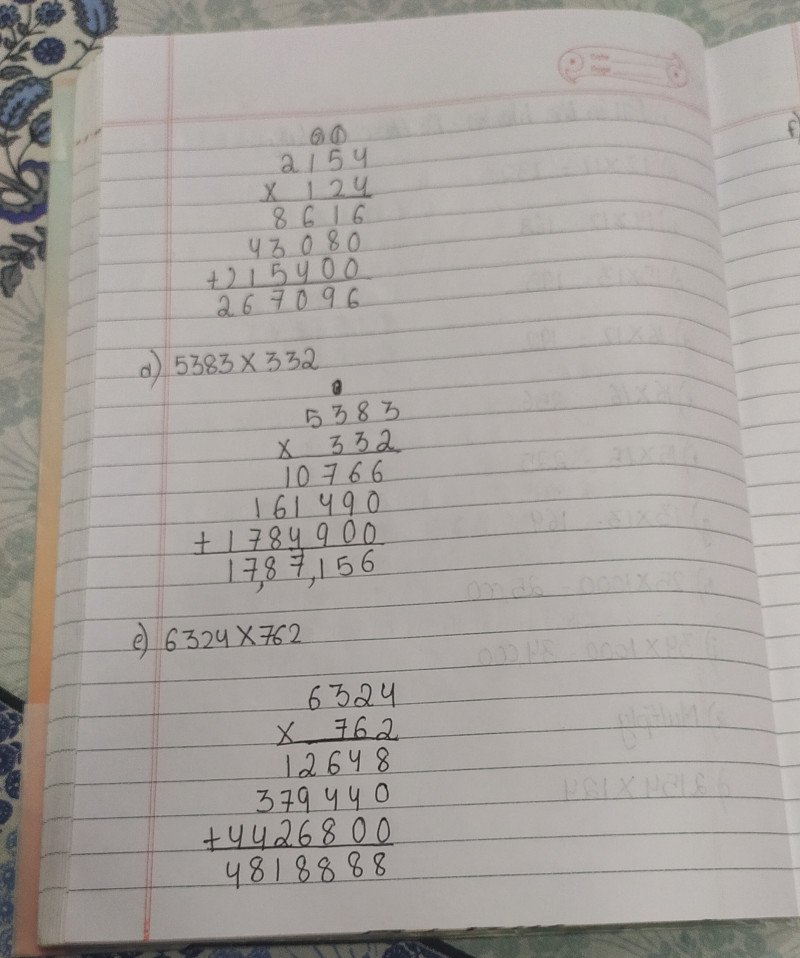 2154
x 124
8616
43080
+215400
267096
d) 5383 X 332
5383
x 332
10766
161490
+ 1784900
17,87,156
e) 6324 X 762
6324
x 762
12648
379440
+4426800
4818888
f)